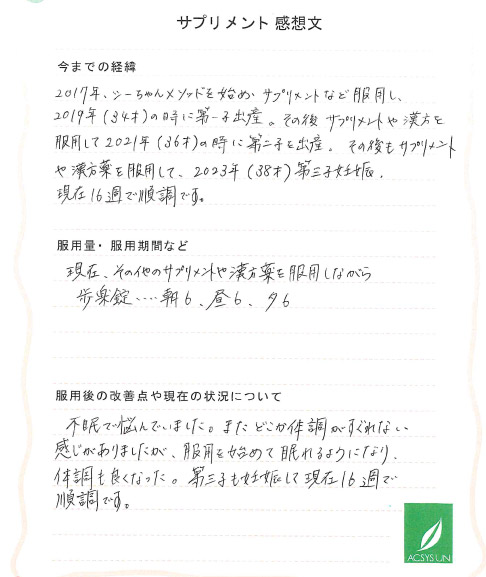 サプリメント 感想文
今までの経緯
2017年、シーちゃんメソッドを始め、サプリメントなど服用し、
2019年(34才)の時に第一子出産。その後サプリメントや漢方を
服用して2021年(36才)の時に第二子を出産。その後もサプリメント
や漢方薬を服用して、2023年(38才)第三子妊娠、
現在16週で順調です。
服用量・服用期間など
現在、その他のサプリメントや漢方薬を服用しながら
歩楽錠‥‥朝6、昼6、夕6
服用後の改善点や現在の状況について
不眠で悩んでいました。また どこか体調がすぐれない
感じがありましたが、服用を始めて眠れるようになり、
体調も良くなった。第三子も妊娠して現在16週で
順調です。
ACSYSUN